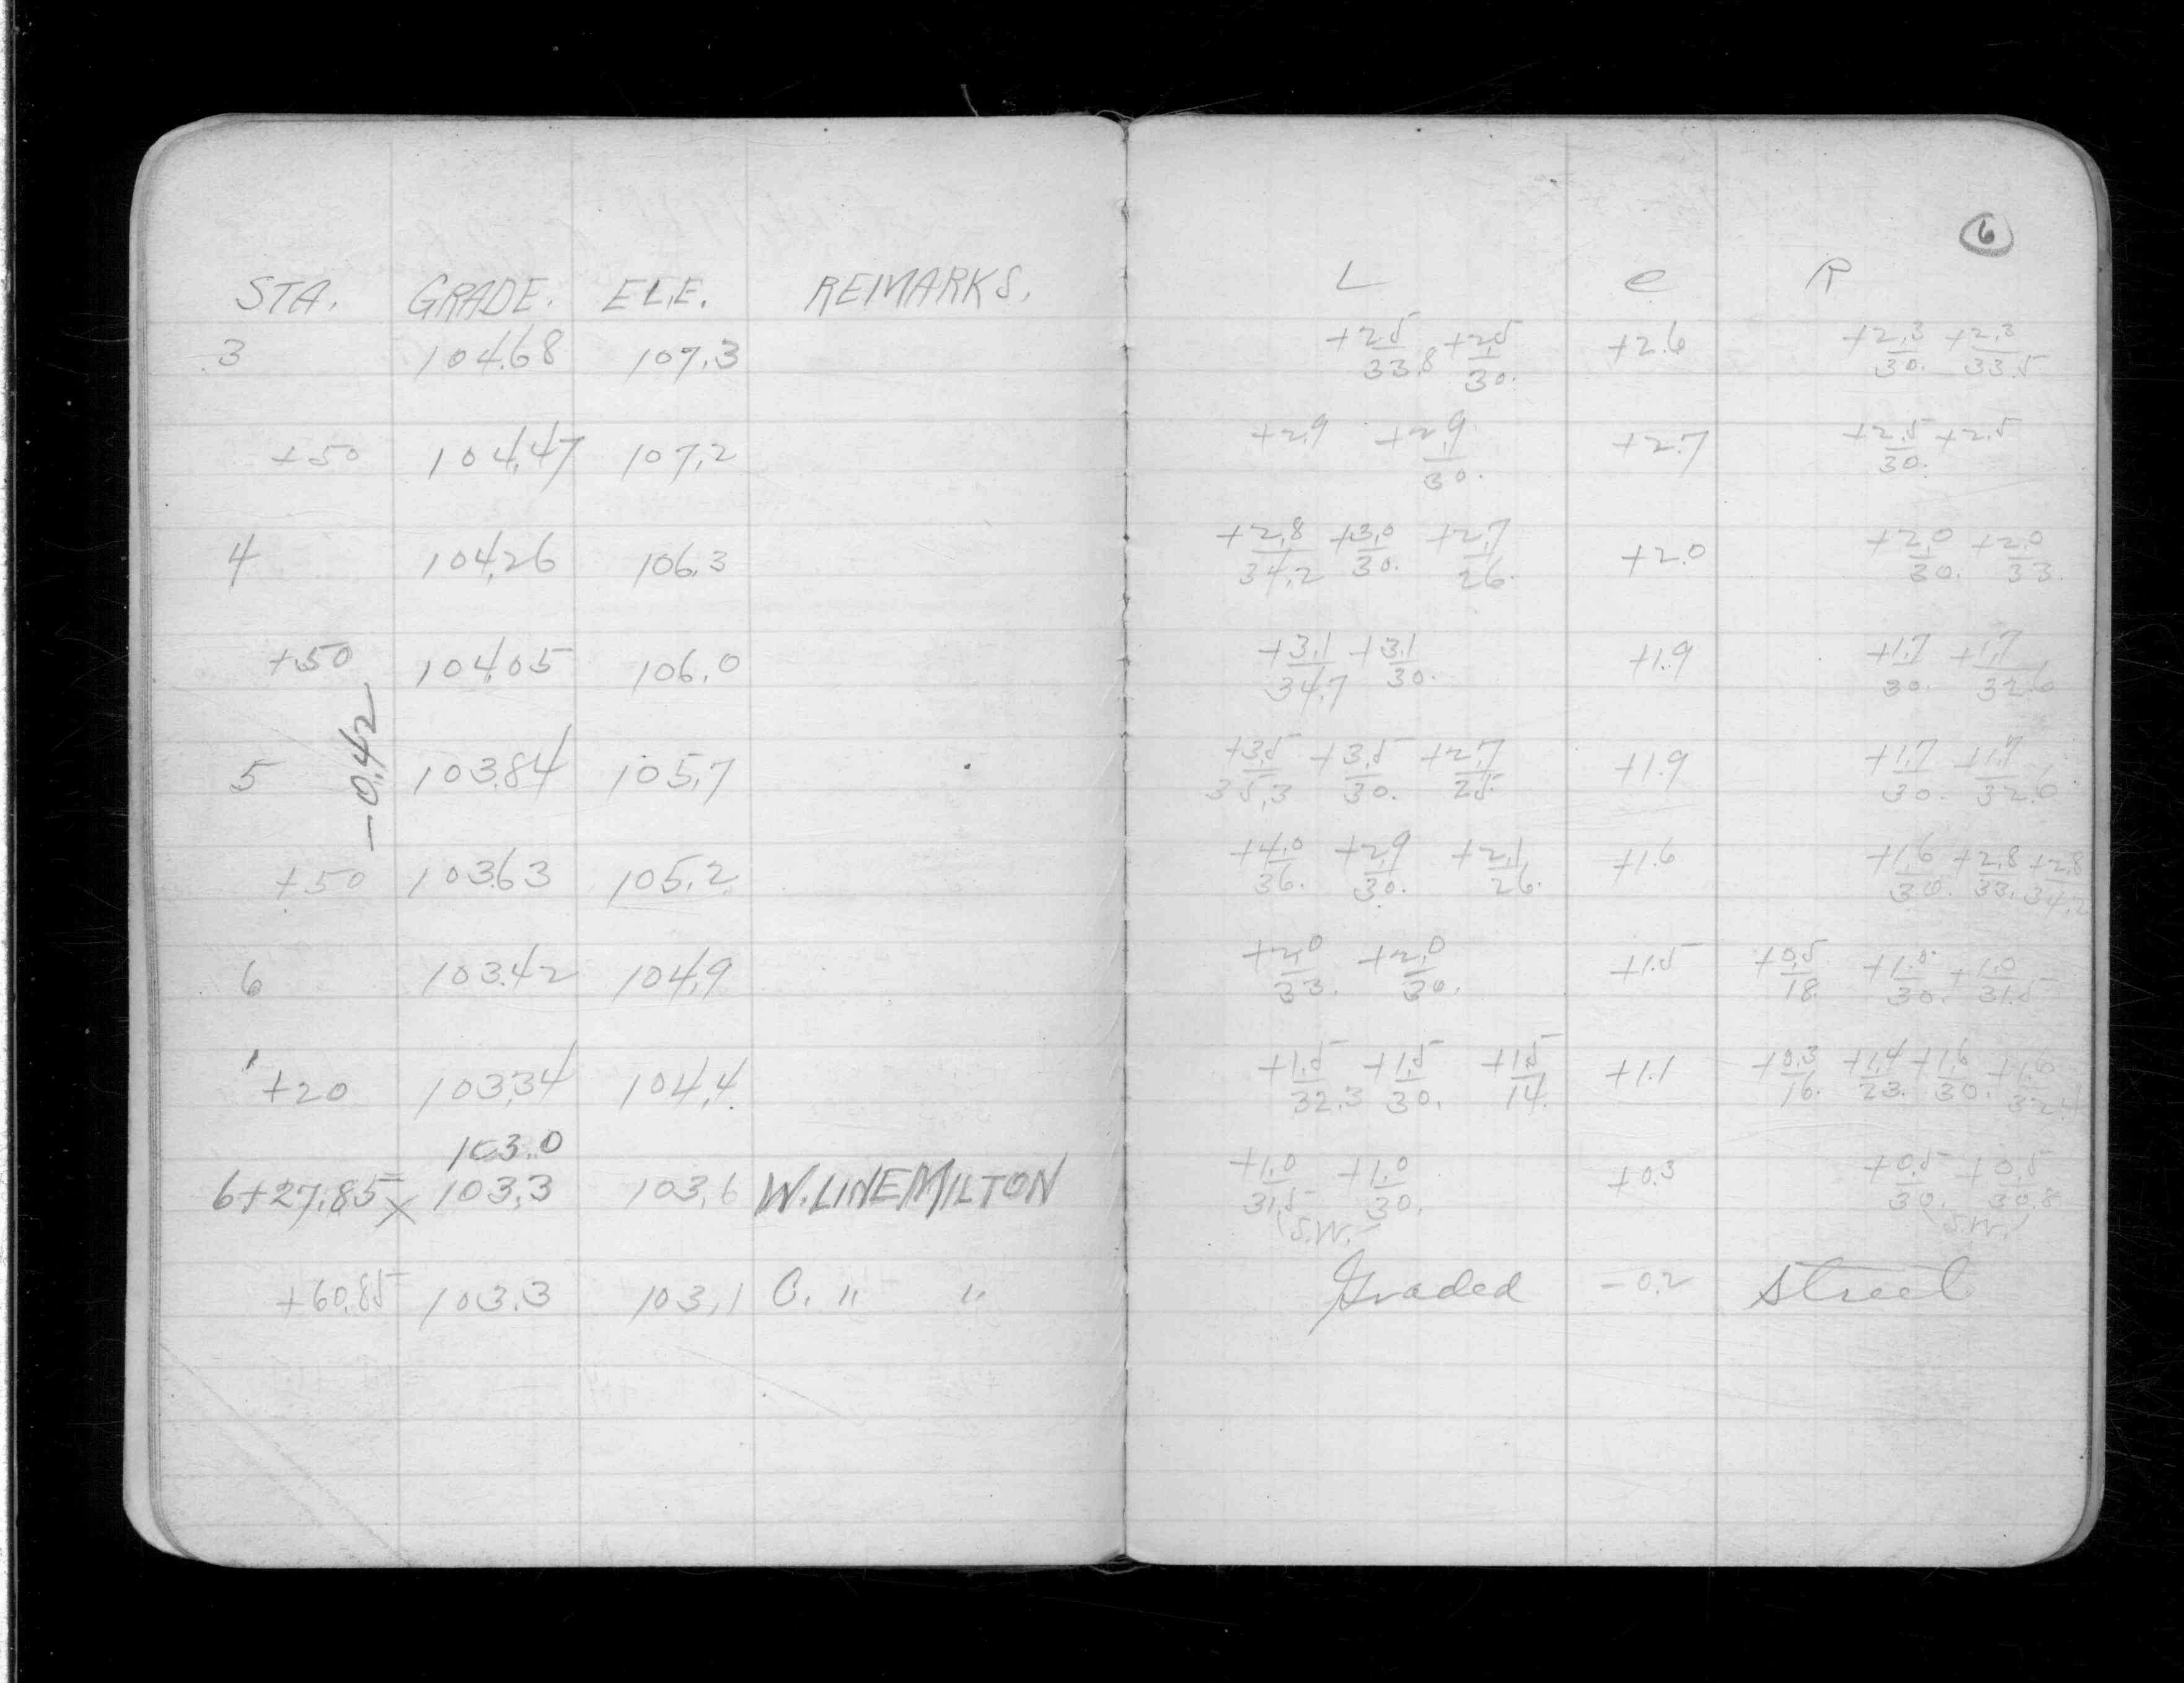 6
STA. GRADE. ELE. REMARKS. L C R
3 104.68 107.3 +2.5/33.8 +2.5/30. +2.6 +2.3/30. +2.3/33.5
+50 104.47 107.2 +2.9 +2.9/30. +2.7 +2.5/30. +2.5
4 104.26 106.3 +2.8/34.2 +3.0/30. +2.7/26. +2.0 +2.0/30. +2.0/33.
+50 104.05 106.0 +3.1/34.7 +3.1/30. +1.9 +1.7/30. +1.7/32.6
-0.42
5 103.84 105.7 +3.5/35.3 +3.5/30. +2.7/25. +1.9 +1.7/30. +1.7/32.6
+50 103.63 105.2 +4.0/36. +2.9/30. +2.1/26. +1.6 +1.6/30. +2.8/33. +2.8/34.2
6 103.42 104.9 +2.0/33. +2.0/30. +1.5 +0.5/18. +1.0/30. +1.0/31.5
+20 103.34 104.4 +1.5/32.3 +1.5/30. +1.5/14. +1.1 +0.3/16. +1.4/23. +1.6/30. +1.6/32.4
103.0
6+27.85 x 103.3 103.6 W. LINE MILTON +1.0/31.5 +1.0/30. +0.3 +0.5/30. +0.5/30.8
(S.W.) (S.W.)
+60.85 103.3 103.1 C. " " Graded -0.2 Street